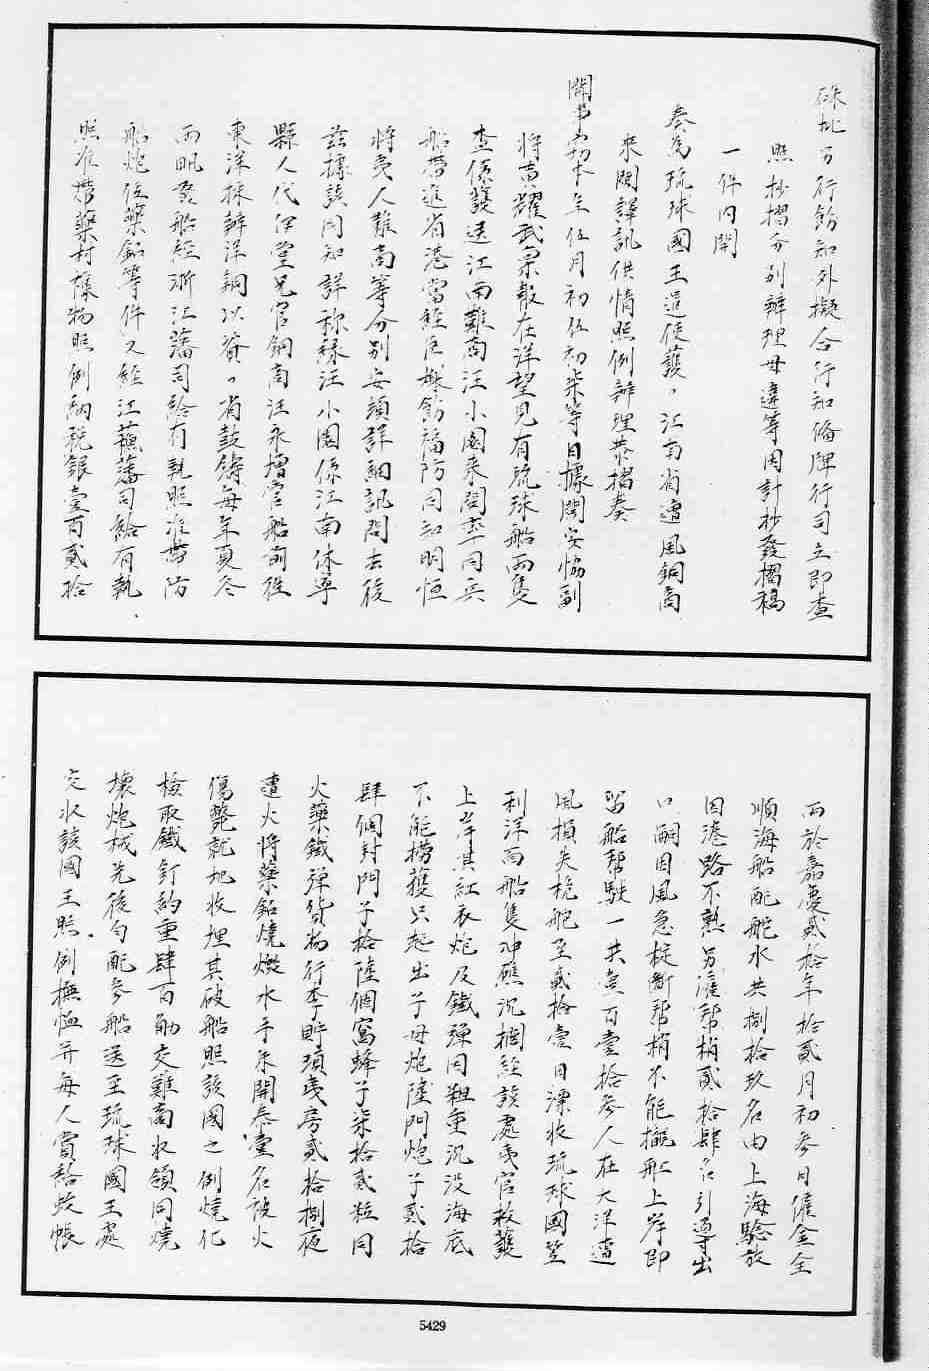 硃批另行飭知外擬合行知備牌行司立即查
照抄摺分別辦理毋違等因計抄發摺稿
一件內開
奏爲琉球國王遣使護〻江南省遭風銅商
來閩譯訊供情照例辦理恭摺奏
聞事竊本年伍月初伍初柒等日據閩安協副
將高耀武稟報在洋望見有琉球船兩隻
查係護送江南難商汪小園來閩盔同兵
船帶進省港當經臣檄飭福防同知明恒
將夷人難商等分別安頓詳細訊問去後
茲據該同知詳称緣汪小園係江南休寧
縣人代伊堂兄官銅商汪永增管船前往
東洋採辦洋銅以資〻省鼓鑄每年夏冬
兩帆發船經浙江藩司給有執照准帶防
船炮位藥鉛等件又經江蘇藩司給有執
照准帶藥材雜物照例納稅銀壹百貳拾
兩於嘉慶貳拾年拾貳月初參日僱金全
順海船配舵水共捌拾玖名由上海驗放
因港路不熟另僱帮梢貳拾肆名引導出
口嗣因風急椗斷帮梢不能攏船上岸即
留船帮駛一共壹百壹拾參人在大洋遭
風損失桅舵至貳拾壹日漂收琉球國笠
利洋面船隻冲礁沉擱經該處夷官救護
上岸其紅衣炮及鐵彈因粗重沉没海底
不能撈獲只起出子母炮陸門炮子貳拾
肆個封門子拾陸個窩蜂子柒拾貳粒同
火藥鐵彈貨物行李貯頓夷房貳拾捌夜
遭火將藥鉛燒燬水手朱開泰壹名被火
傷斃就地收埋其破船照該國之例燒化
檢取鐵釘約重肆百觔交難商收領同燒
壞炮械先後勻配參船送至琉球國王處
交收該國王照例撫恤并每人賞給蚊帳
5429